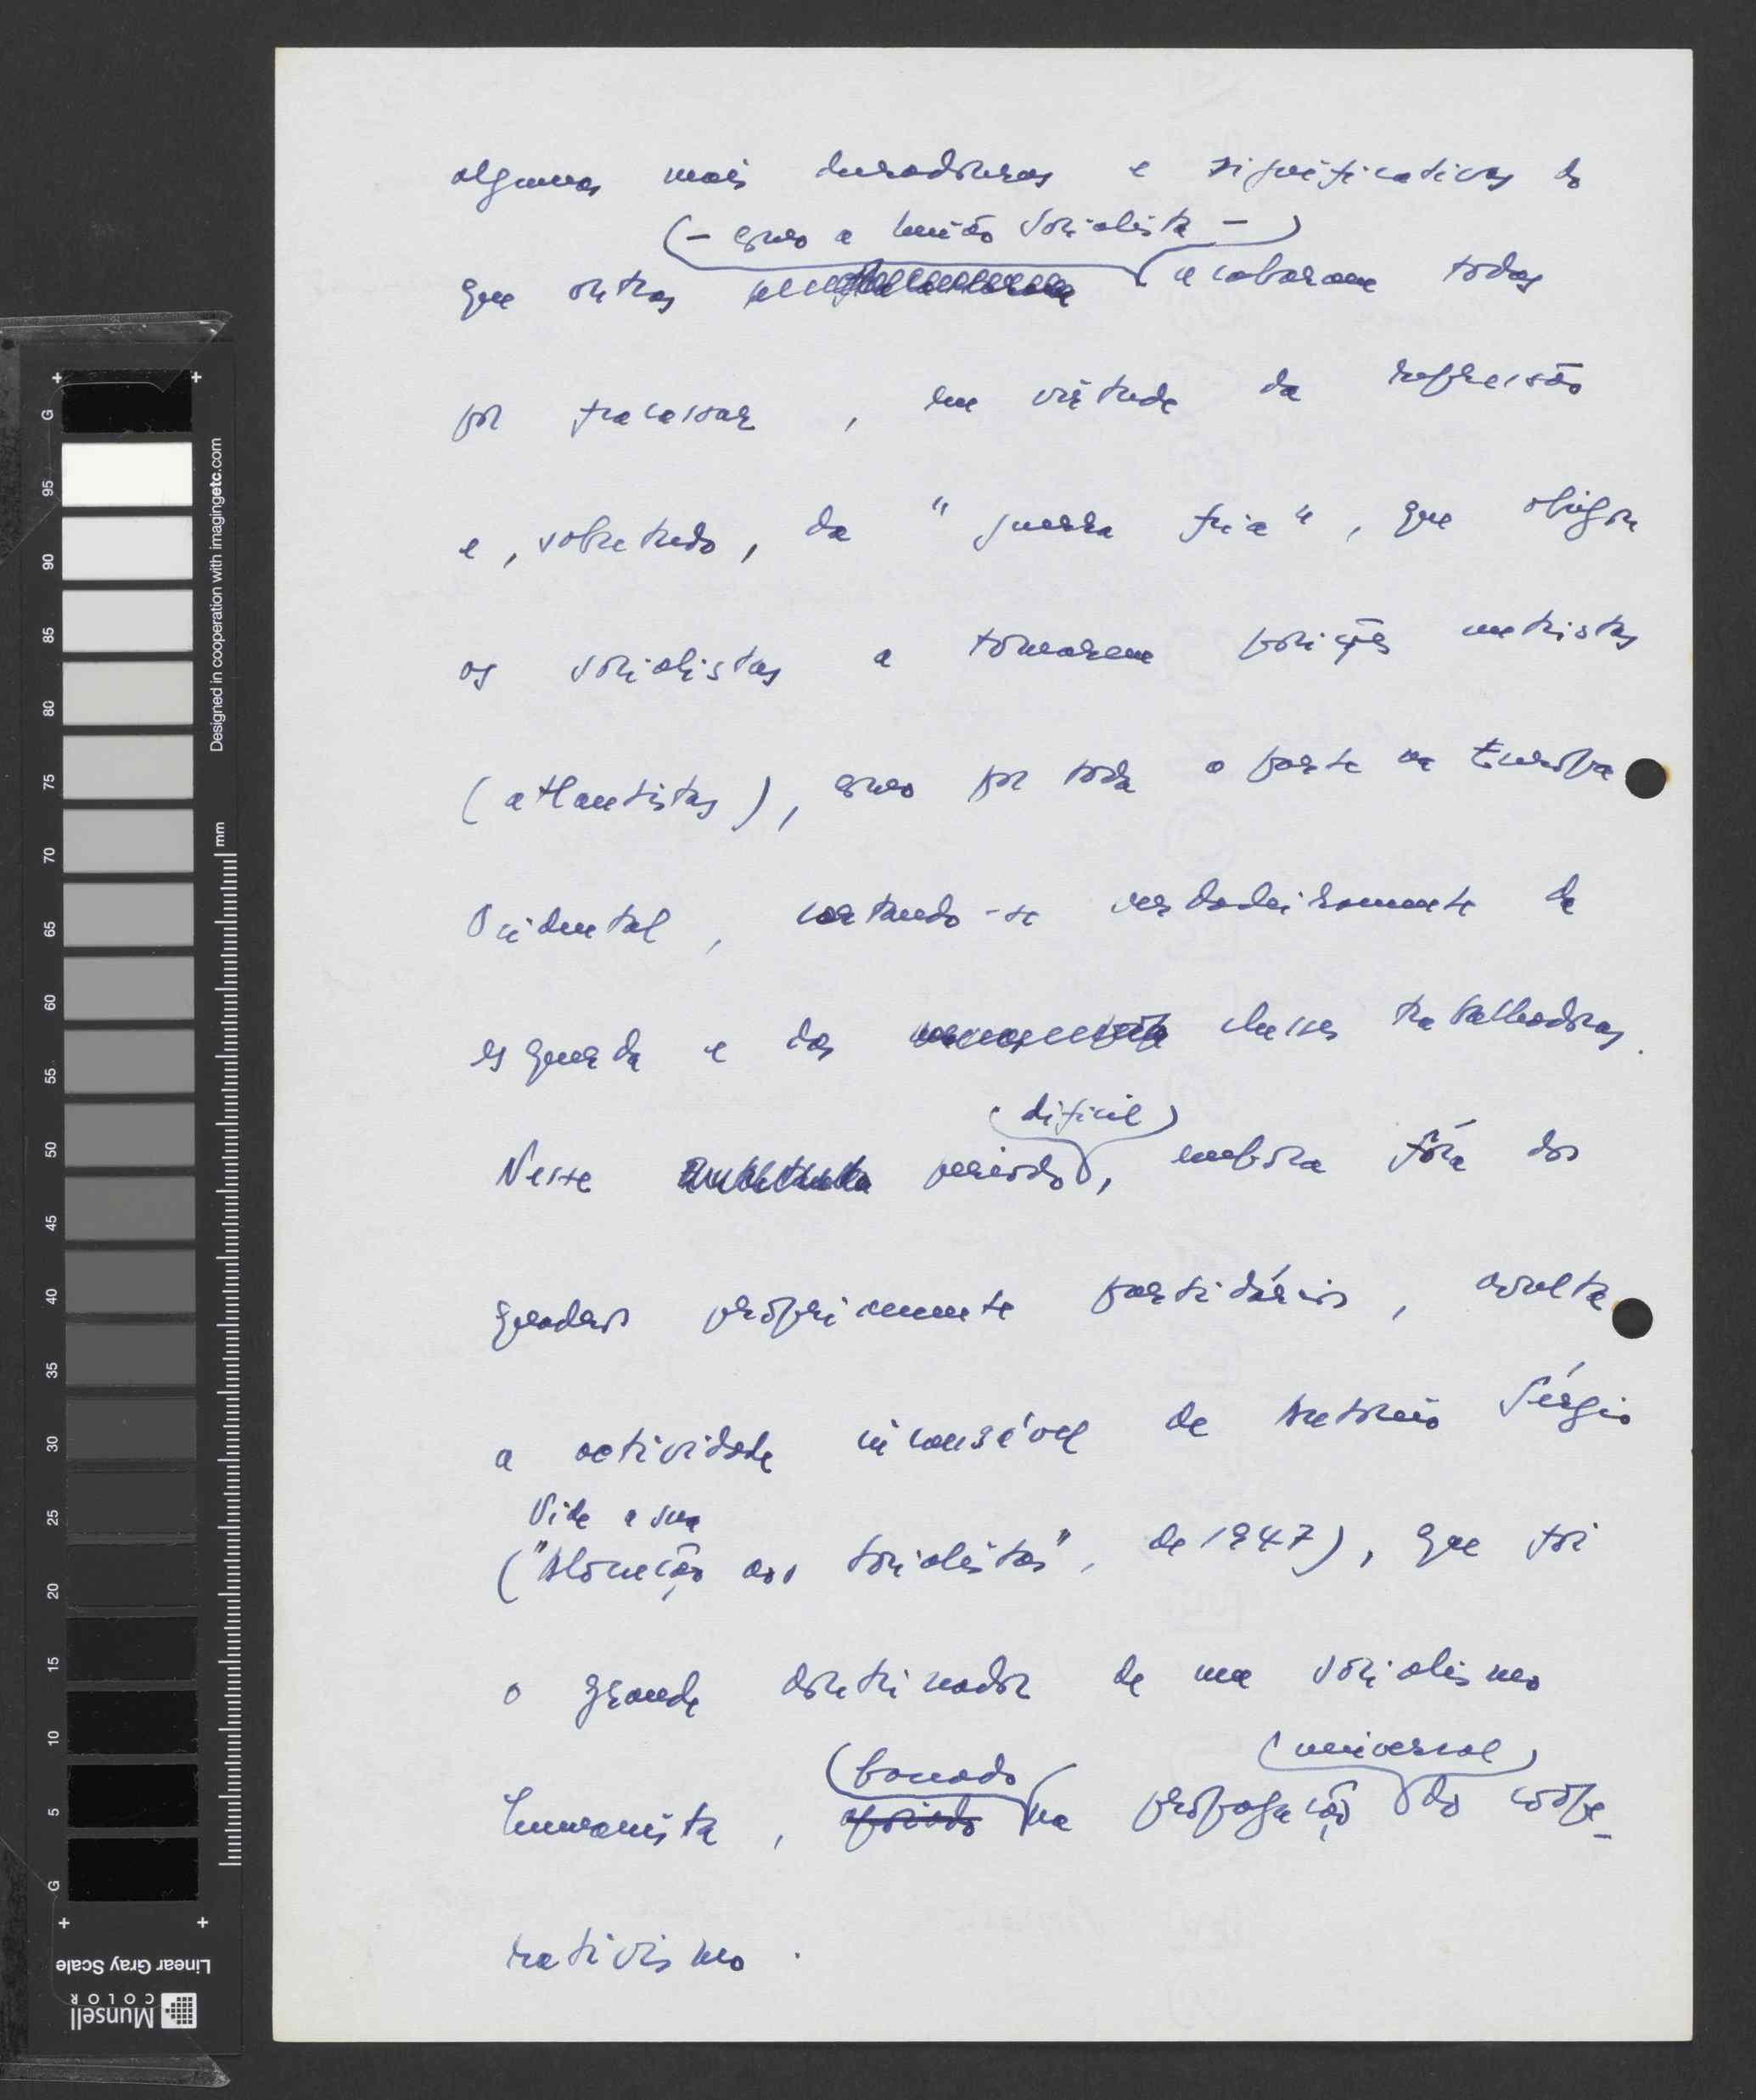 algumas mais duradouras e significativas do
(– como a União Socialista –)
que outras acabaram todas
por fracassar, em virtude da repressão
e, sobretudo, da "guerra fria", que obigou
os socialistas a tomarem posições
(atlantistas), como por toda a parte na Europa
Ocidental, cortando-se verdadeiramente da
esquerda e das classes trabalhadoras.
(difícil)
Nesse período, embora fóra dos
quadros própriamente partidários, avulta
a actividade incansável de António Sérgio
Vide a sua
("Alocução aos Socialistas", de 1947), que foi
o grande doutrinador de um socialismo
(universal)
humanista, apoiado na propagação do coope-
rativismo.
G 95 90 85 80 75 70 65 60 55 50 45 40 35 30 25 20 15 10 5 G
Designed in cooperation with imagingetc.com
mm
Linear Gray Scale
Munsell
COLOR